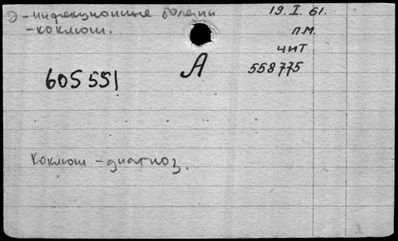 Э-инфекционные болезни
-коклюш.
19.I.61.
п.м.
чит
605551
А
558775
Коклюш - диагноз.